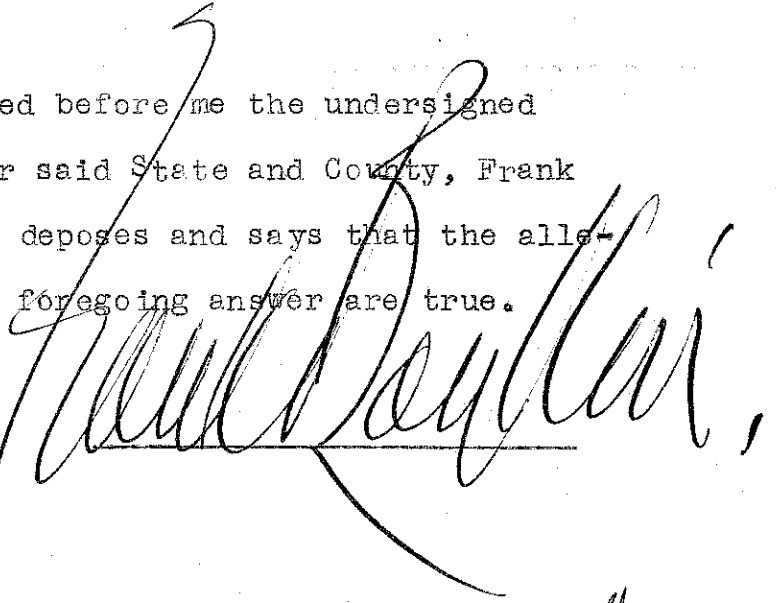 ed before me the undersigned
r said State and County, Frank
deposes and says that the alle-
foregoing answer are true.
Frank